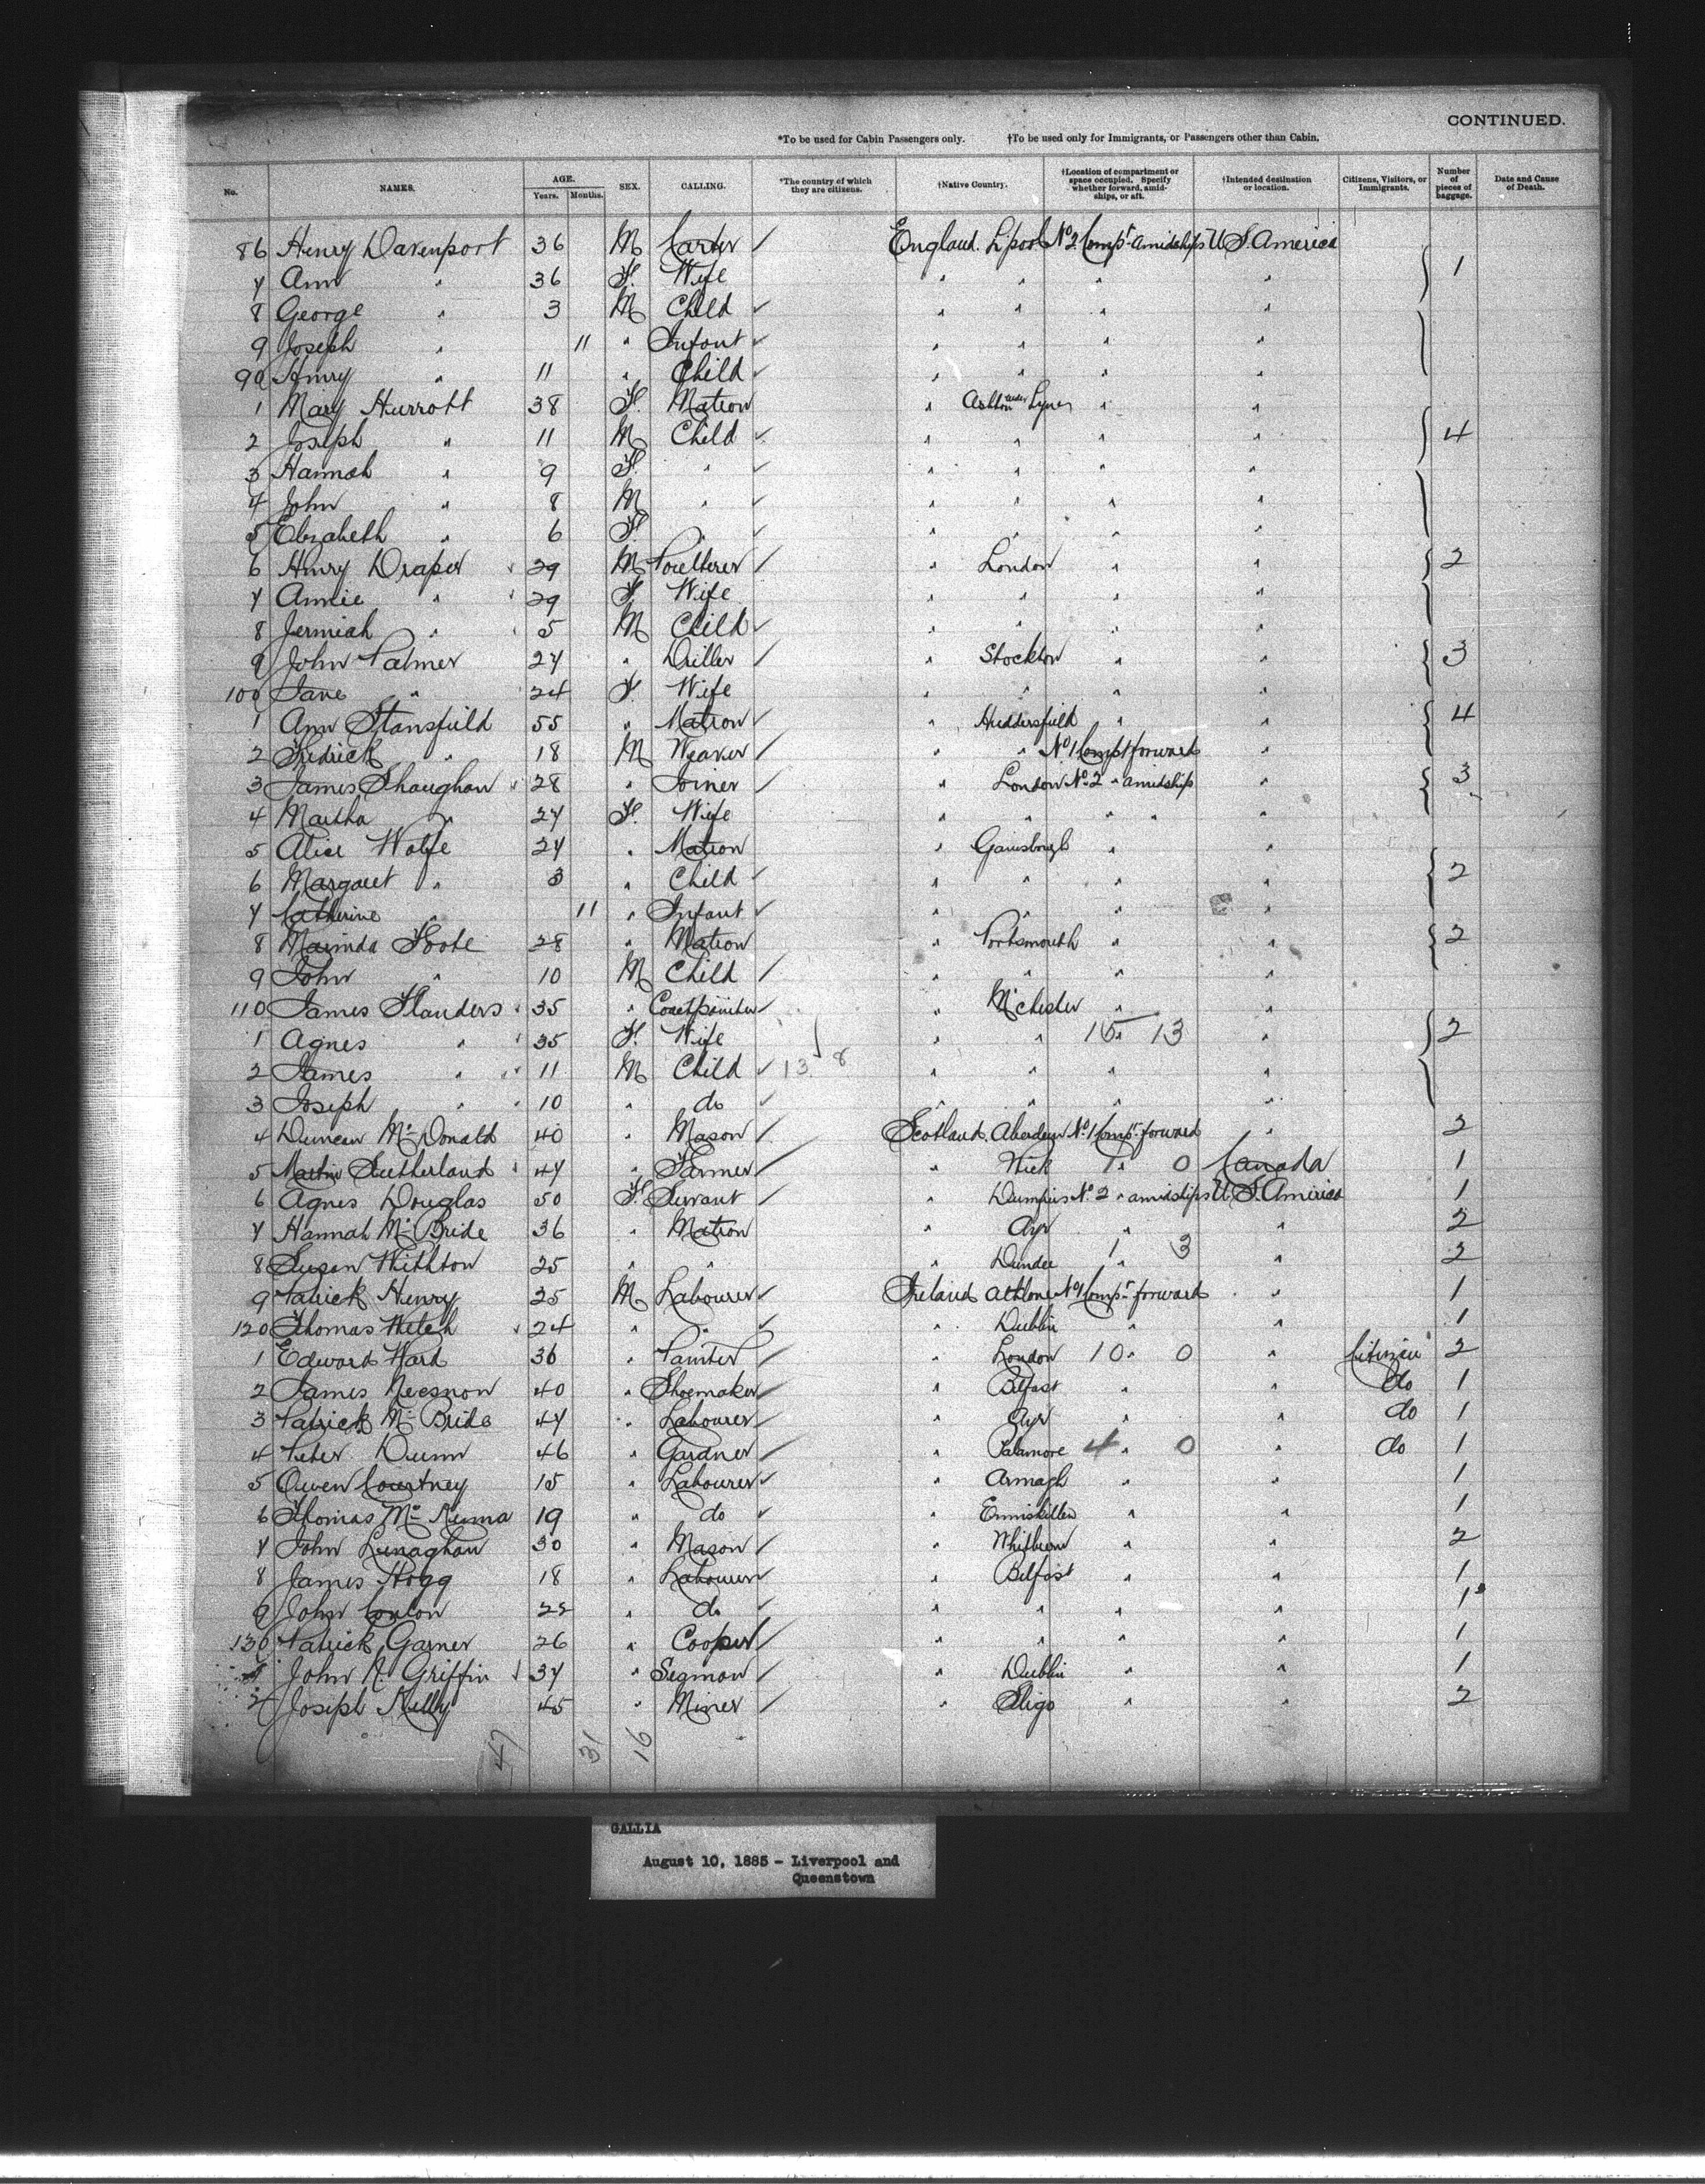 CONTINUED.
*To be used for Cabin Passengers only. †To be used only for Immigrants, or Passengers other than Cabin.
No. NAMES. AGE. Years. Months. SEX. CALLING. *The country of which they are citizens. †Native Country. †Location of compartment or space occupied. Specify whether forward, amidships, or aft. †Intended destination or location. Citizens, Visitors, or Immigrants. Number of pieces of baggage. Date and Cause of Death.
86 Henry Davenport 36 M Carter England. Lpool No 2 Compt amidships U.S. America
7 Ann " 36 F. Wife " " " " 1
8 George " 3 M Child " " " "
9 Joseph " 11 " Infant " " " "
90 Henry " 11 " Child " " " "
1 Mary Hurrott 38 F. Matron " Ashton under Lyne " "
2 Joseph " 11 M Child " " " " 4
3 Hannah " 9 F. " " " " "
4 John " 8 M " " " " "
5 Elizabeth " 6 F. " " " " "
6 Henry Draper 29 M Poulterer " London " " 2
7 Annie " 29 F Wife " " " "
8 Jermiah " 5 M Child " " " "
9 John Palmer 27 " Driller " Stockton " " 3
100 Jane " 24 F. Wife " " " "
1 Ann Stansfield 55 " Matron " Huddersfield " " 4
2 Fredrick " 18 M Weaver " " No 1 Compt forward "
3 James Shaughan 28 " Joiner " London No 2 " amidship " 3
4 Martha " 27 F. Wife " " " " "
5 Alice Wolfe 27 " Matron " Gainsbrough " "
6 Margaret " 3 " Child " " " " 2
7 Catherine " 11 " Infant " " " "
8 Marinda Foote 28 " Matron " Portsmouth " " 2
9 John " 10 M Child " " " "
110 James Flanders 35 " Coachpainter " M'chester "
1 Agnes " 35 F. Wife " " 15 " 13 " 2
2 James " 11 M Child 13 8 " " " "
3 Joseph " 10 " do " " " "
4 Duncan McDonald 40 " Mason Scotland. Aberdeen No 1 Compt forward " 2
5 Martin Sutherland 47 " Farmer " Wick 1 " 0 Canada 1
6 Agnes Douglas 50 F. Servant " Dumfries No 2 " amidships U.S. America 1
7 Hannah McBride 36 " Matron " Ayr " " 2
8 Susan 25 " " " Dundee 1 3 " 2
9 Patrick Henry 25 M Labourer Ireland Athlone No 1 Compt forward " 1
120 Thomas 24 " " " Dublin " " 1
1 Edward Ward 36 " Painter " London 10 " 0 " Citizen 2
2 James 40 " Shoemaker " Belfast " " do 1
3 Patrick McBride 47 " Labourer " Ayr " " do 1
4 Peter Dunn 46 " Gardner " 4 " 0 " do 1
5 Owen Courtney 15 " Labourer " Armagh " 1
6 Thomas 19 " do " Enniskillen " " 1
7 John Lunaghan 30 " Mason " Whitburn " " 2
8 James Hogg 18 " Labourer " Belfast " " 1
9 John Conlon 22 " do " " " " 1
130 Patrick Garner 26 " Cooper " " " " 1
1 John A. Griffin 37 " " Dublin " " 1
2 Joseph Kelly 45 " Miner " Sligo " " 2
47 31 16
GALLIA
August 10, 1885 - Liverpool and
Queenstown